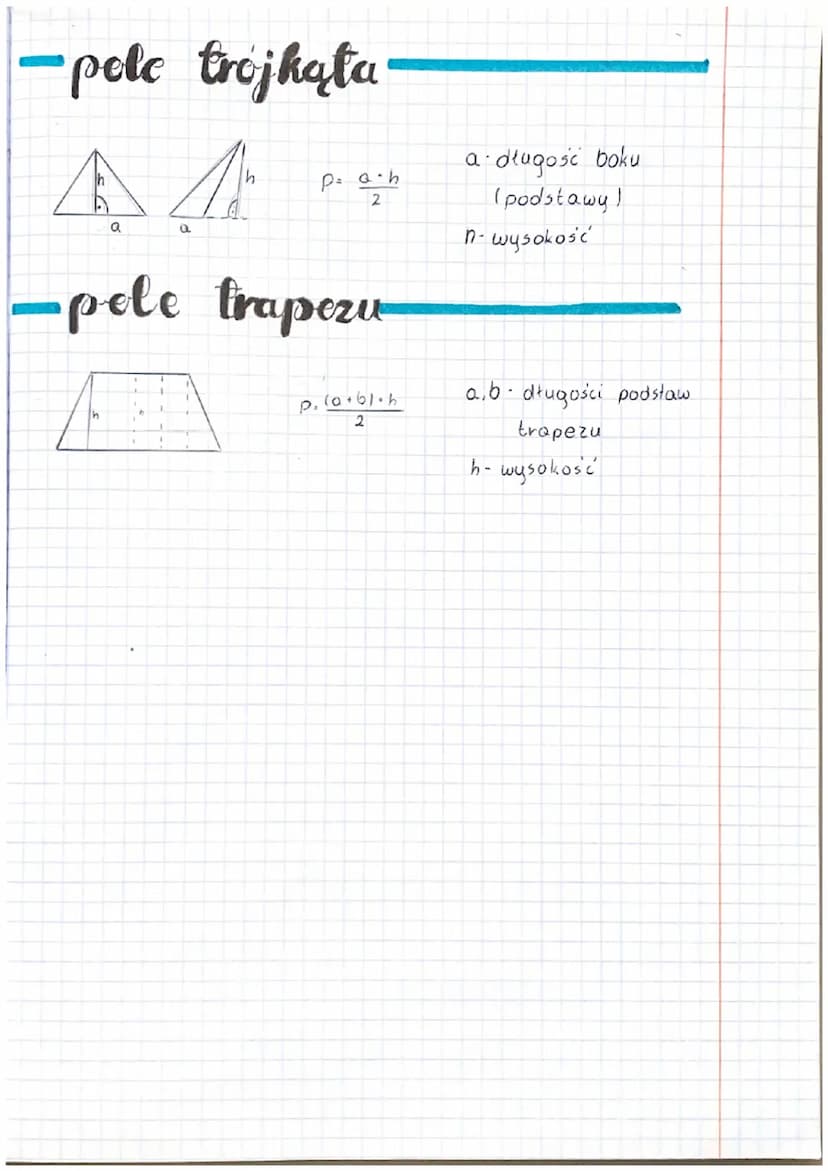 pole trójkąta
h
h
a
a
P= a·h
2
a - długość boku
(podstawy)
h- wysokość
pole trapezu
h
P= (a+b)·h
2
a,b - długości podstaw
trapezu
h- wysokość